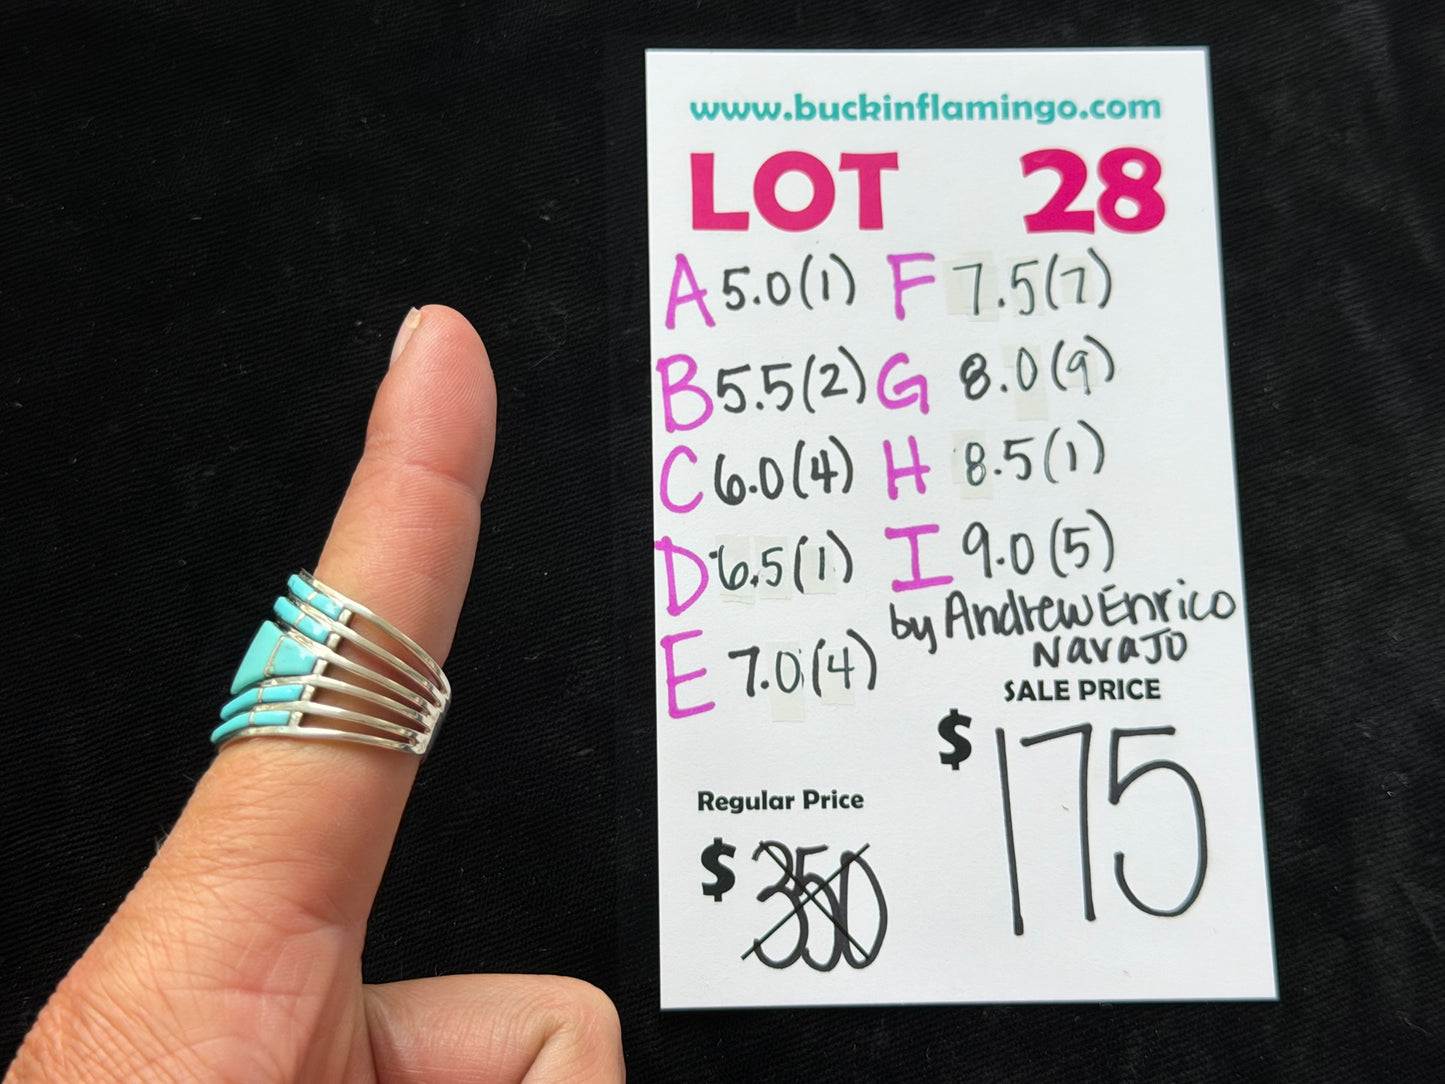 www.buckinflamingo.com
LOT 28
A 5.0(1) F 7.5(7)
B 5.5(2) G 8.0(9)
C 6.0(4) H 8.5(1)
D 6.5(1) I 9.0(5)
by Andrew Enrico
Navajo
E 7.0(4)
SALE PRICE
$175
Regular Price
$350